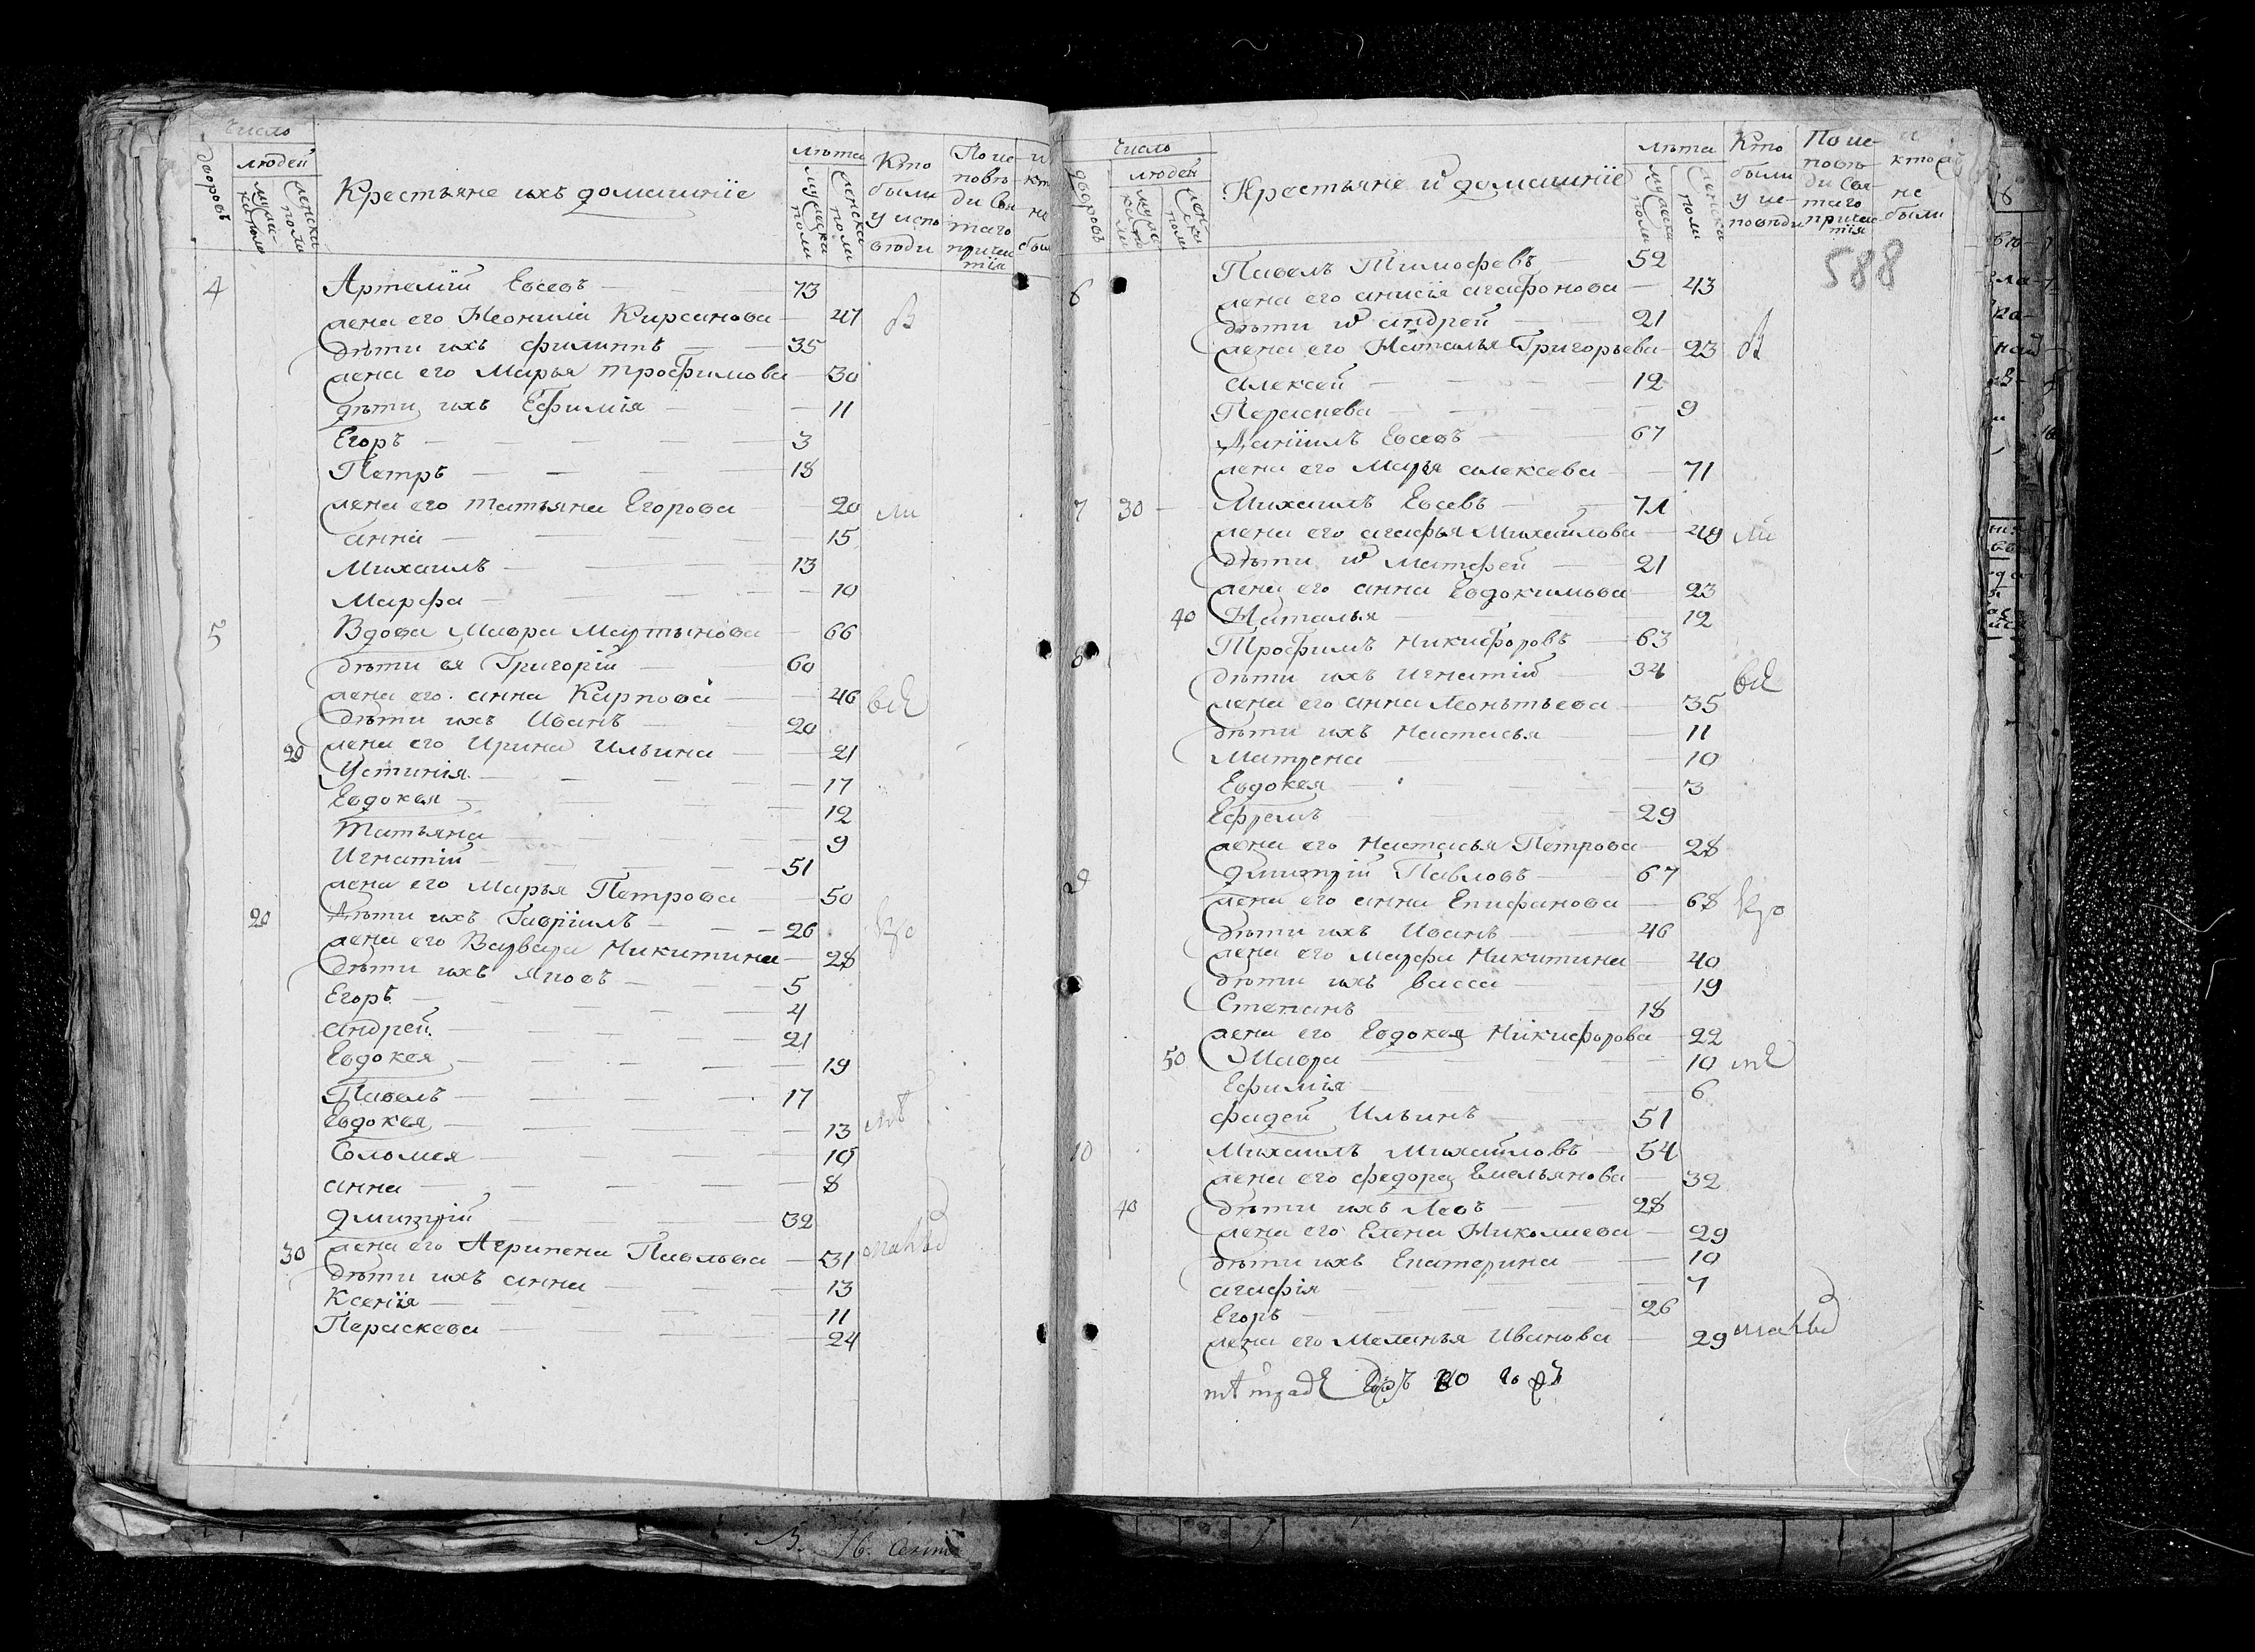 Число
дворовъ
людей
мужеска полу
женска полу
Крестьяне ихъ домашнїе
лѣта
мужеска полу
женска полу
Кто были у исповѣди
По исповѣди Святаго причастїя
4 Артемїй Евсевъ 73
жена его Неонила Кирсанова 47
дѣти ихъ филиппъ 35
жена его Марья трофимова 30
дѣти ихъ Ефимїя 11
Егоръ 3
Петръ 18
жена его татьяна Егорова 20
анна 15
Михаилъ 13
Марфа 10
5 Вдова Мавра Мартынова 66
дѣти ея Григорїй 60
жена его анна Карпова 46
дѣти ихъ Иванъ 20
20 жена его Ирина Ильина 21
Устинїя 17
Евдокея 12
Татьяна 9
Игнатїй 51
жена его Марья Петрова 50
20 дѣти ихъ Гаврїилъ 26
жена его Варвара Никитина 28
дѣти ихъ яковъ 5
Егоръ 4
андрей 21
Евдокея 19
Павелъ 17
Евдокея 13
Соломея 10
анна 8
дмитрїй 32
30 жена его Агрипена Павлова 31
дѣти ихъ анна 13
Ксенїя 11
Пераскева 24
Число
дворовъ
людей
мужеска полу
женска полу
Крестьяне и домашнїе
лѣта
мужеска полу
женска полу
Кто были у исповѣди
По исповѣди Святаго причастїя
и кто не были
588
6 Павелъ Тимофевъ 52
жена его анисїя агафонова 43
дѣти ихъ андрей 21
жена его Наталья Григорьева 23
алексей 12
Пераскева 9
Данїилъ Евсевъ 67
жена его Марья алексева 71
7 30 Михаилъ Евсевъ 71
жена его агафья Михайлова 49
дѣти ихъ Матфей 21
жена его анна Евдокимова 23
40 Наталья 12
8 Трофимъ Никифоровъ 63
дѣти ихъ игнатїй 34
жена его анна Леонтьева 35
дѣти ихъ Настасья 11
Матрена 10
Евдокея 3
Ефремъ 29
жена его Настасья Петрова 28
9 дмитрїй Павловъ 67
жена его анна Епифанова 68
дѣти ихъ Иванъ 46
жена его Марфа Никитина 40
дѣти ихъ васса 19
Степанъ 18
жена его Евдокея Никифорова 22
50 Мавра 10
Ефимїя 6
фадей Ильинъ 51
10 Михаилъ Михайловъ 54
жена его федора Емельянова 32
40 дѣти ихъ Левъ 28
жена его Елена Николаева 29
дѣти ихъ Екатерина 10
агафїя 7
Егоръ 26
жена его Меланья Иванова 29